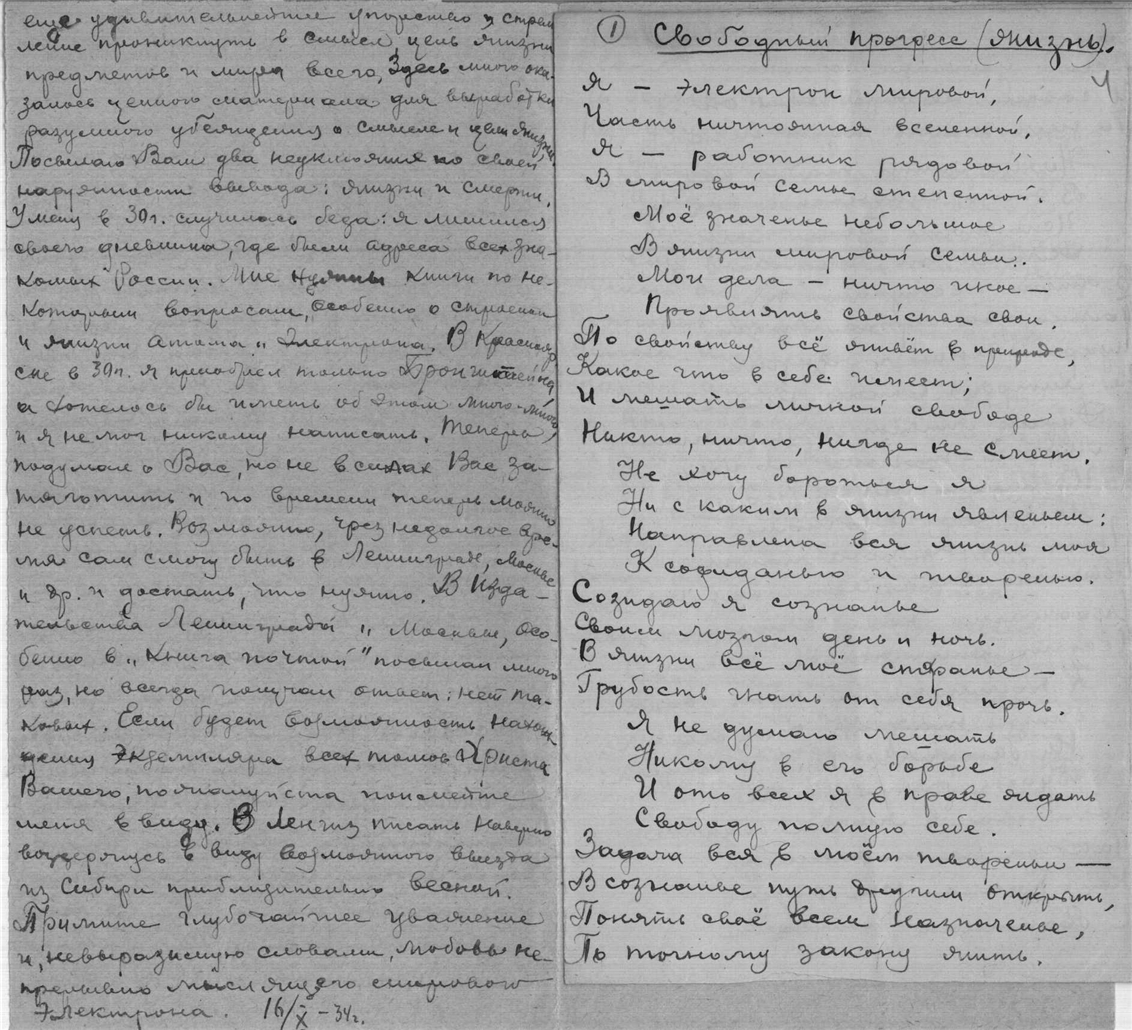 еще удивительнейшее упорство и стрем
ление проникнуть в смысл, цель жизни
предметов и мира всего, Здесь много ока-
залось ценного материала для выработки
разумного убеждения о смысле и цели жизни.
Посылаю Вам два неуклюжие по своей
наружности вывода: жизни и смерти.
У меня в 30 г. случилась беда: я лишился
своего дневника, где были адреса всех зна-
комых России. Мне нужны книги по не-
которым вопросам, Особенно о строении
и жизни Атома и Электрона. В Краснояр
ске в 30 г. я приобрел только Бронштейна,
а хотелось бы иметь об этом много-много
и я не мог никому написать. Теперь,
подумал о Вас, но не в силах Вас за-
тяготить и по времени теперь можно
не успеть. Возможно, чрез недолгое вре-
мя сам смогу быть в Ленинграде, Москве
и др. и достать, что нужно. В Изда-
тельства Ленинграда и Москвы, Осо-
бенно в „Книга почтой" посылал много
раз, но всегда получал ответ: нет та-
ковых. Если будет возможность нахож
дения Экземпляра всех томов Христа
Вашего, пожалуйста поимейте
меня в виду. В Ленгиз писать наверно
воздержусь в виду возможного выезда
из Сибири приблизительно весной.
Примите глубочайшее уважение
и, невыразимую словами, любовь не-
прерывно мыслящего мирового
Электрона. 16/X – 34 г.
① Свободный прогресс (жизнь).
Я – Электрон мировой,
Часть ничтожная вселенной,
Я – работник рядовой
В мировой семье степенной.
Моё значенье небольшое
В жизни мировой семьи.
Мои дела – ничто иное –
Проявлять свойства свои.
По свойству всё живёт в природе,
Какое что в себе имеет;
И мешать личной свободе
Никто, ничто, нигде не смеет.
Не хочу бороться я
Ни с каким в жизни явленьем:
Направлена вся жизнь моя
К созиданью и творенью.
Созидаю я сознанье
Своим мозгом день и ночь.
В жизни всё моё старанье –
Грубость гнать от себя прочь.
Я не думаю мешать
Никому в его борьбе
И от всех я в праве ждать
Свободу полную себе.
Задача вся в моём твореньи –
В сознанье путь другим открыть,
Понять своё всем назначенье,
По точному закону жить.